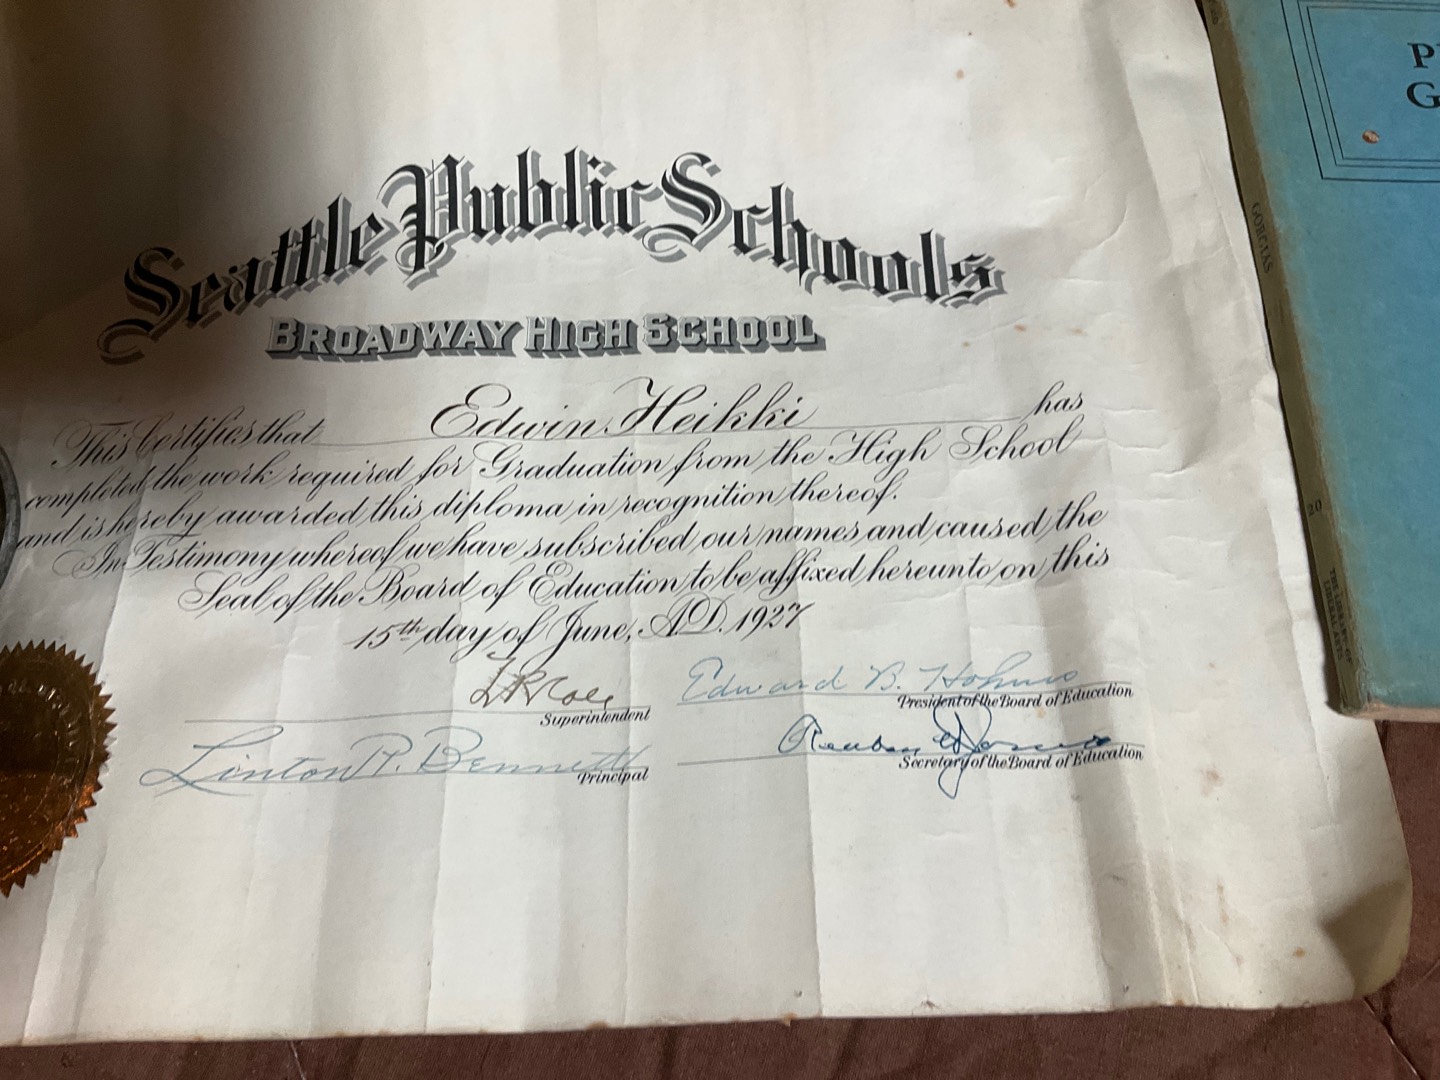 Seattle Public Schools
BROADWAY HIGH SCHOOL
This Certifies that Edwin Heikki has
completed the work required for Graduation from the High School
and is hereby awarded this diploma in recognition thereof.
In Testimony whereof we have subscribed our names and caused the
Seal of the Board of Education to be affixed hereunto on this
15th day of June, A.D. 1927
Superintendent
Edward B. Holmes
President of the Board of Education
Linton P. Bennett
Principal
Reuben W. Jones
Secretary of the Board of Education
P
G
GORGIAS
20
THE LIBRARY OF
LIBERAL ARTS